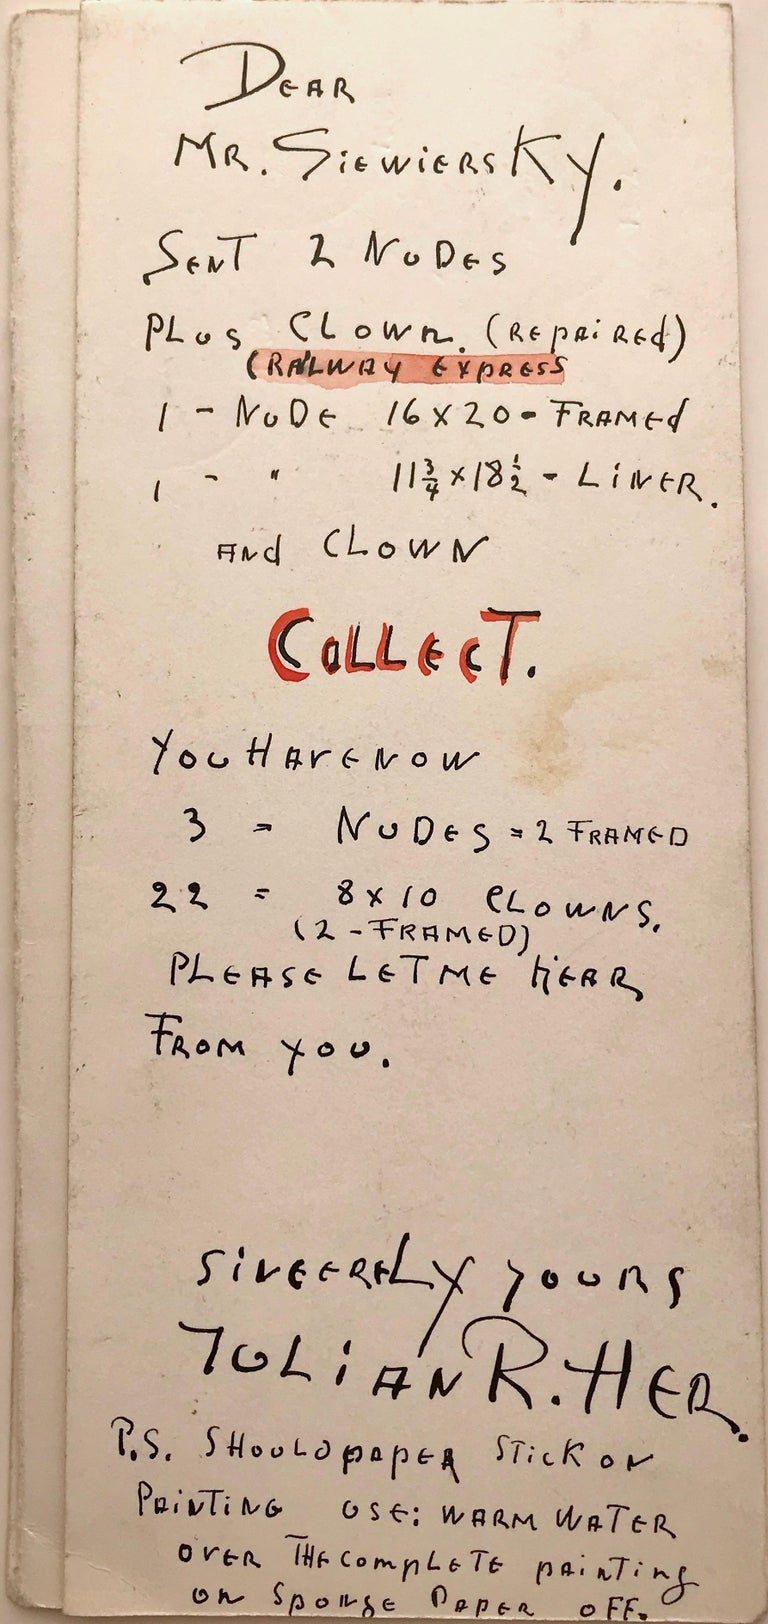 DEAR
MR. SIEWIERSKY.
SENT 2 NUDES
PLUS CLOWN. (REPAIREd)
(RAILWAY EXPRESS
1 - NUDE 16 X 20 - FRAMEd
1 - " 11 3/4 X 18 1/2 - LINER.
ANd CLOWN
COLLECT.
YOU HAVE NOW
3 = NUDES = 2 FRAMED
22 = 8 X 10 CLOWNS.
(2 - FRAMED)
PLEASE LET ME HEAR
FROM YOU.
SINCERELY YOURS
JULIAN R. HER.
P.S. SHOULD PAPER STICK ON
PAINTING USE: WARM WATER
OVER THE COMPLETE PAINTING
OR SPONGE PAPER OFF.